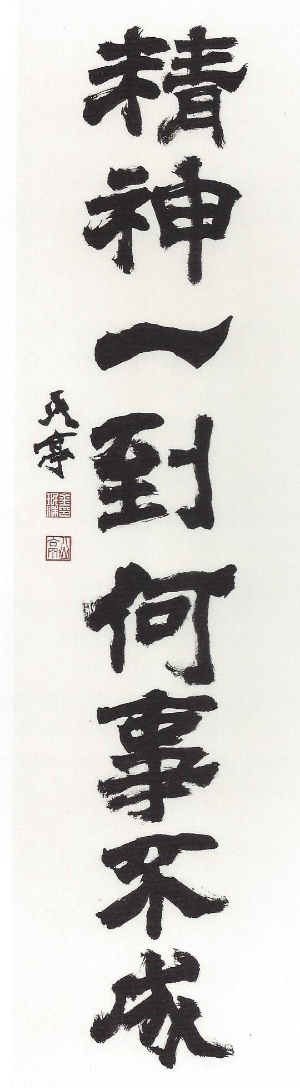 精神一到何事不成
亭